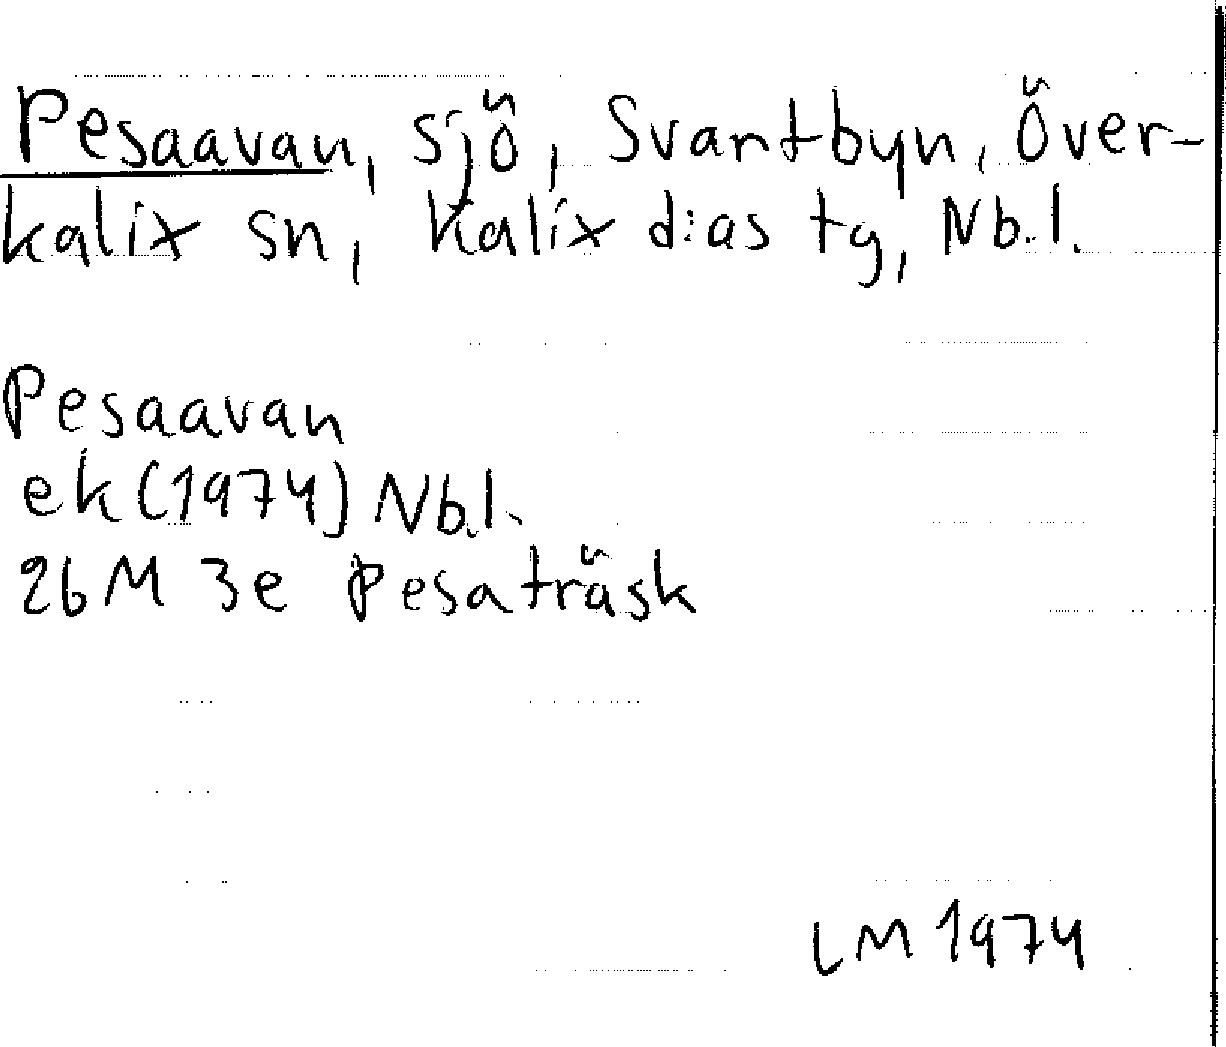 Pesaavan, sjö, Svartbyn, Över-
kalix sn, Kalix d:as tg, Nb.l.
Pesaavan
ek (1974) Nb.l.
26M 3e Pesaträsk
LM 1974